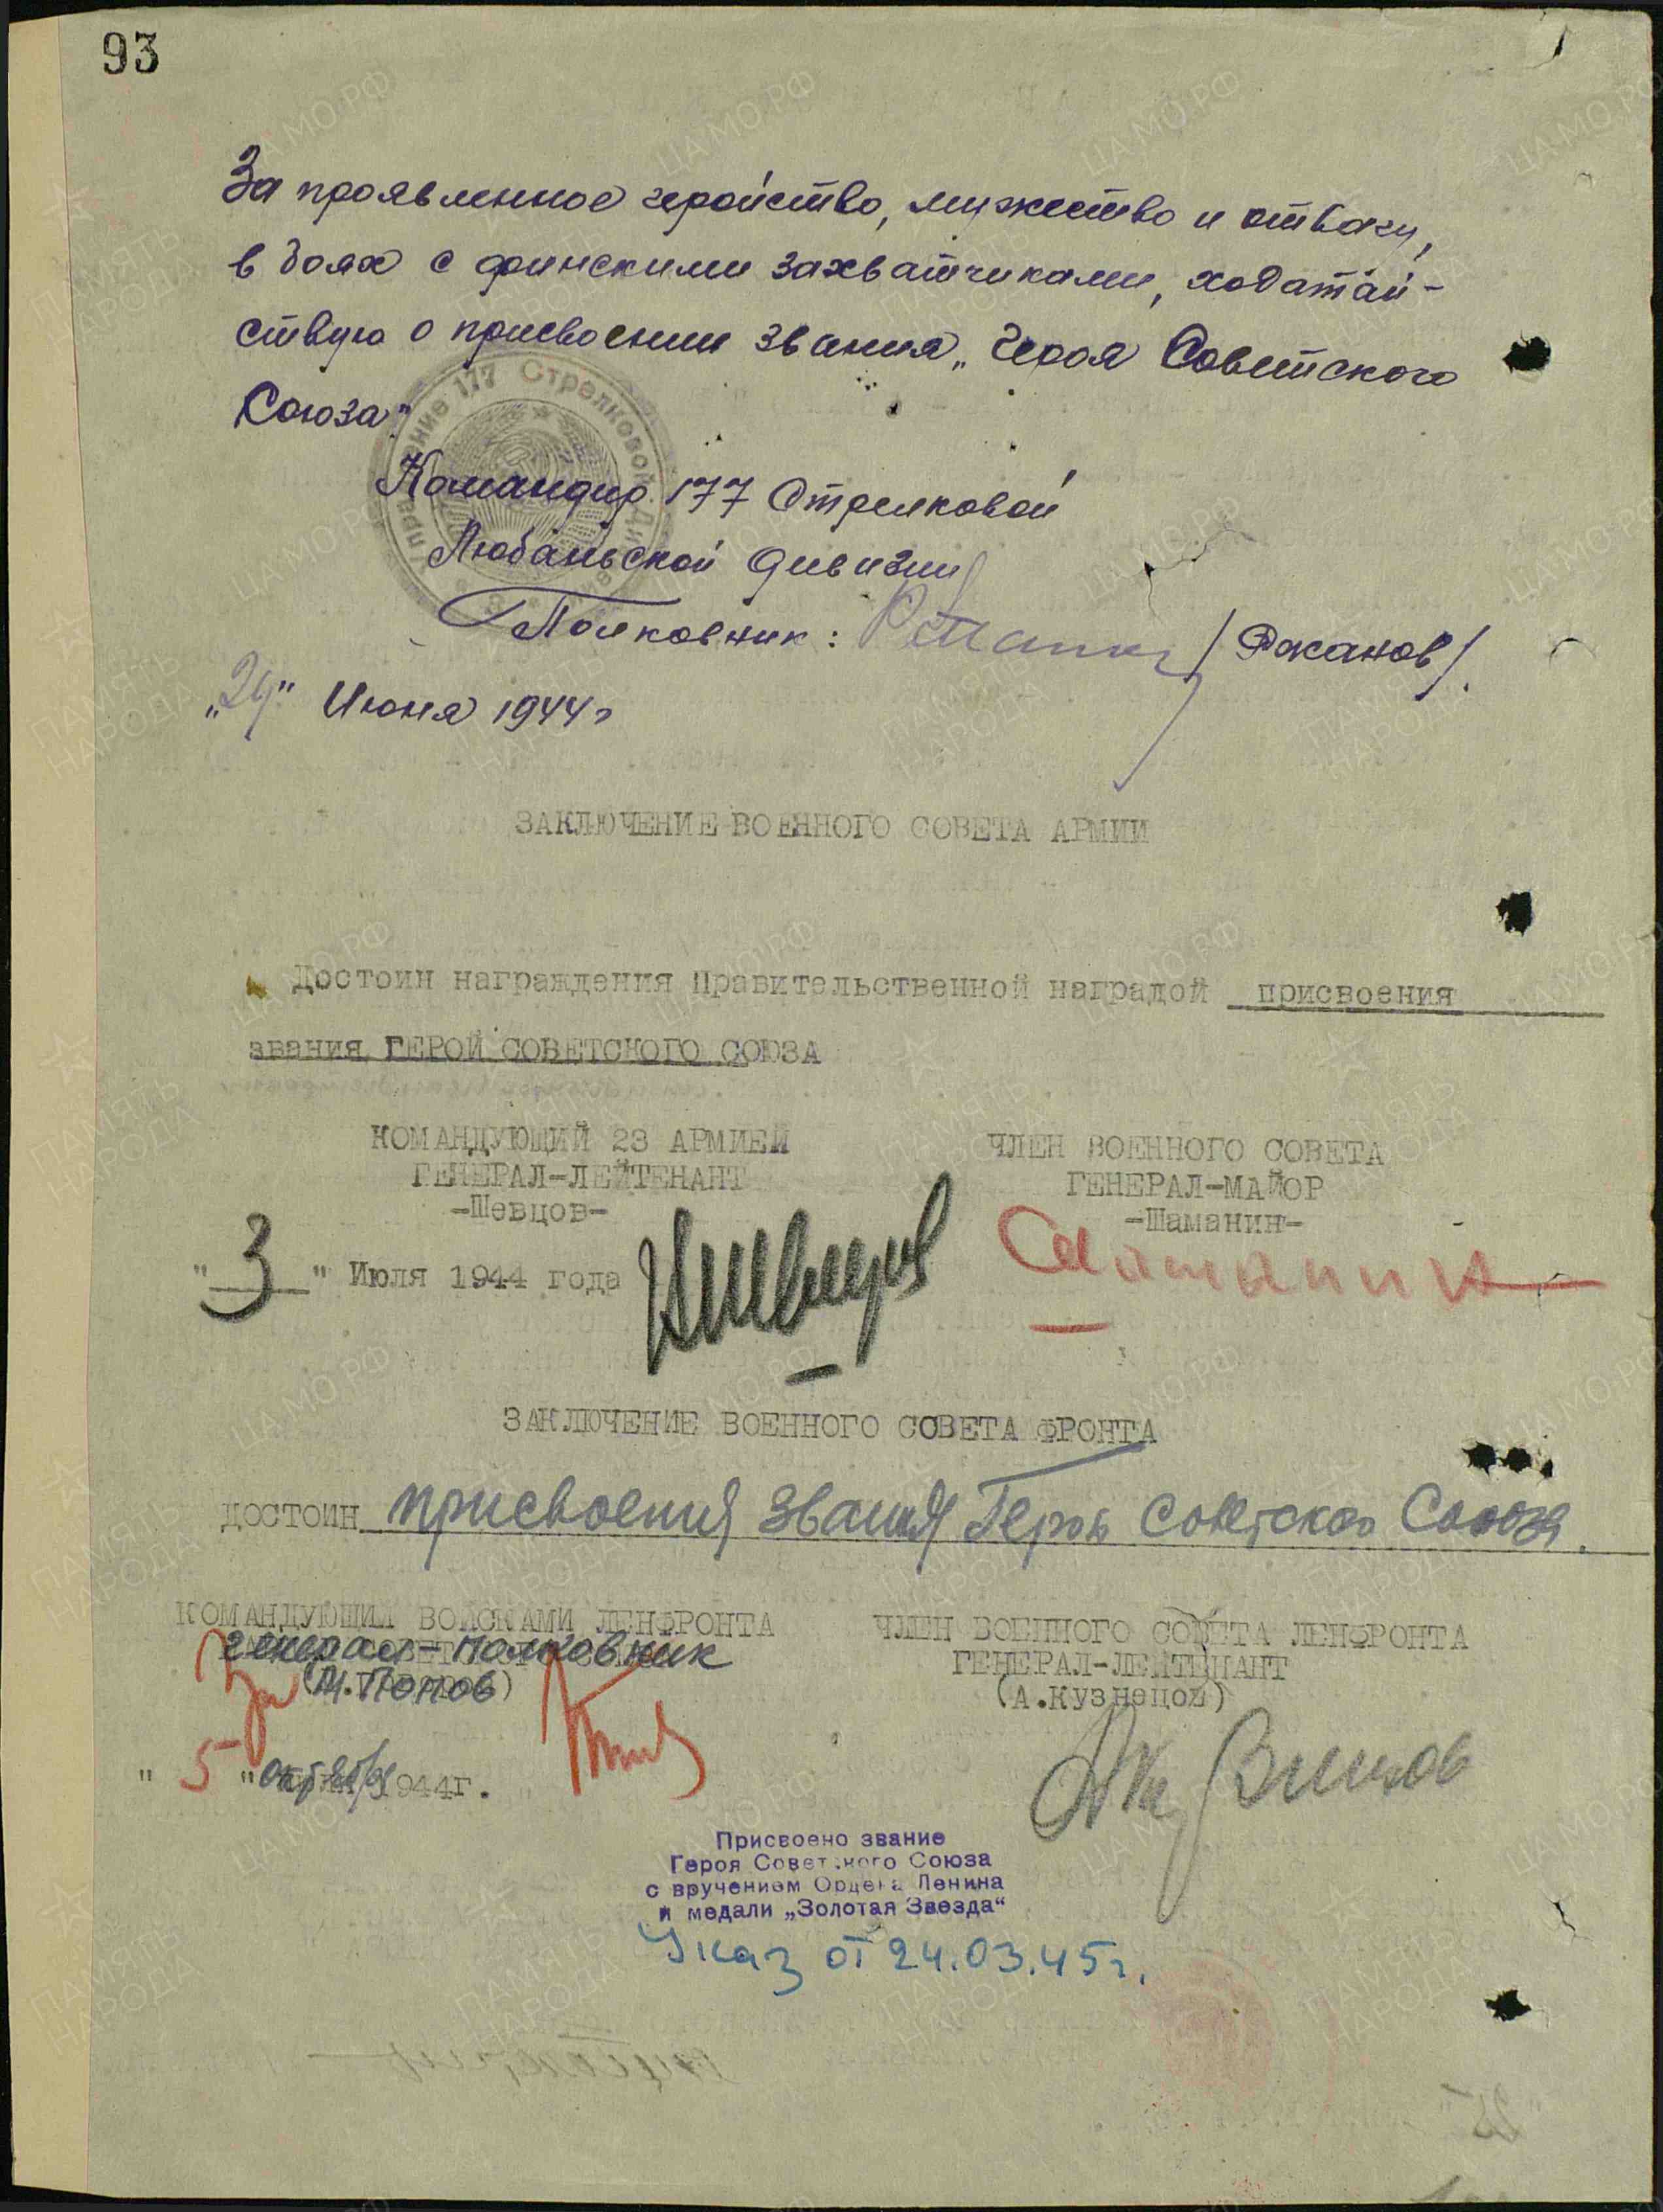 93
За проявленное геройство, мужество и отвагу,
в боях с финскими захватчиками, ходатай-
ствую о присвоении звания „Героя Советского
Союза".
Командир 177 Стрелковой
Любаньской дивизии
Полковник: /Ржанов/.
„29" Июня 1944г
ЗАКЛЮЧЕНИЕ ВОЕННОГО СОВЕТА АРМИИ
Достоин награждения Правительственной наградой присвоения
звания ГЕРОЙ СОВЕТСКОГО СОЮЗА
КОМАНДУЮЩИЙ 23 АРМИЕЙ
ГЕНЕРАЛ-ЛЕЙТЕНАНТ
-Шевцов-
ЧЛЕН ВОЕННОГО СОВЕТА
ГЕНЕРАЛ-МАЙОР
-Шаманин-
"3" Июля 1944 года
ЗАКЛЮЧЕНИЕ ВОЕННОГО СОВЕТА ФРОНТА
ДОСТОИН присвоения звания Героя Советского Союза.
КОМАНДУЮЩИЙ ВОЙСКАМИ ЛЕНФРОНТА
генерал-полковник
За (М.Попов)
ЧЛЕН ВОЕННОГО СОВЕТА ЛЕНФРОНТА
ГЕНЕРАЛ-ЛЕЙТЕНАНТ
(А.Кузнецов)
"5" октября 1944г.
Присвоено звание
Героя Советского Союза
с вручением Ордена Ленина
и медали „Золотая Звезда"
Указ от 24.03.45г.